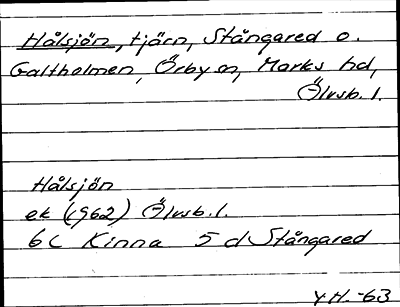 Hålsjön, tjärn, Stångared o.
Galtholmen, Örby sn, Marks hd,
Älvsb. l.
Hålsjön
ek (1962) Älvsb. l.
6C Kinna 5d Stångared
YH -63